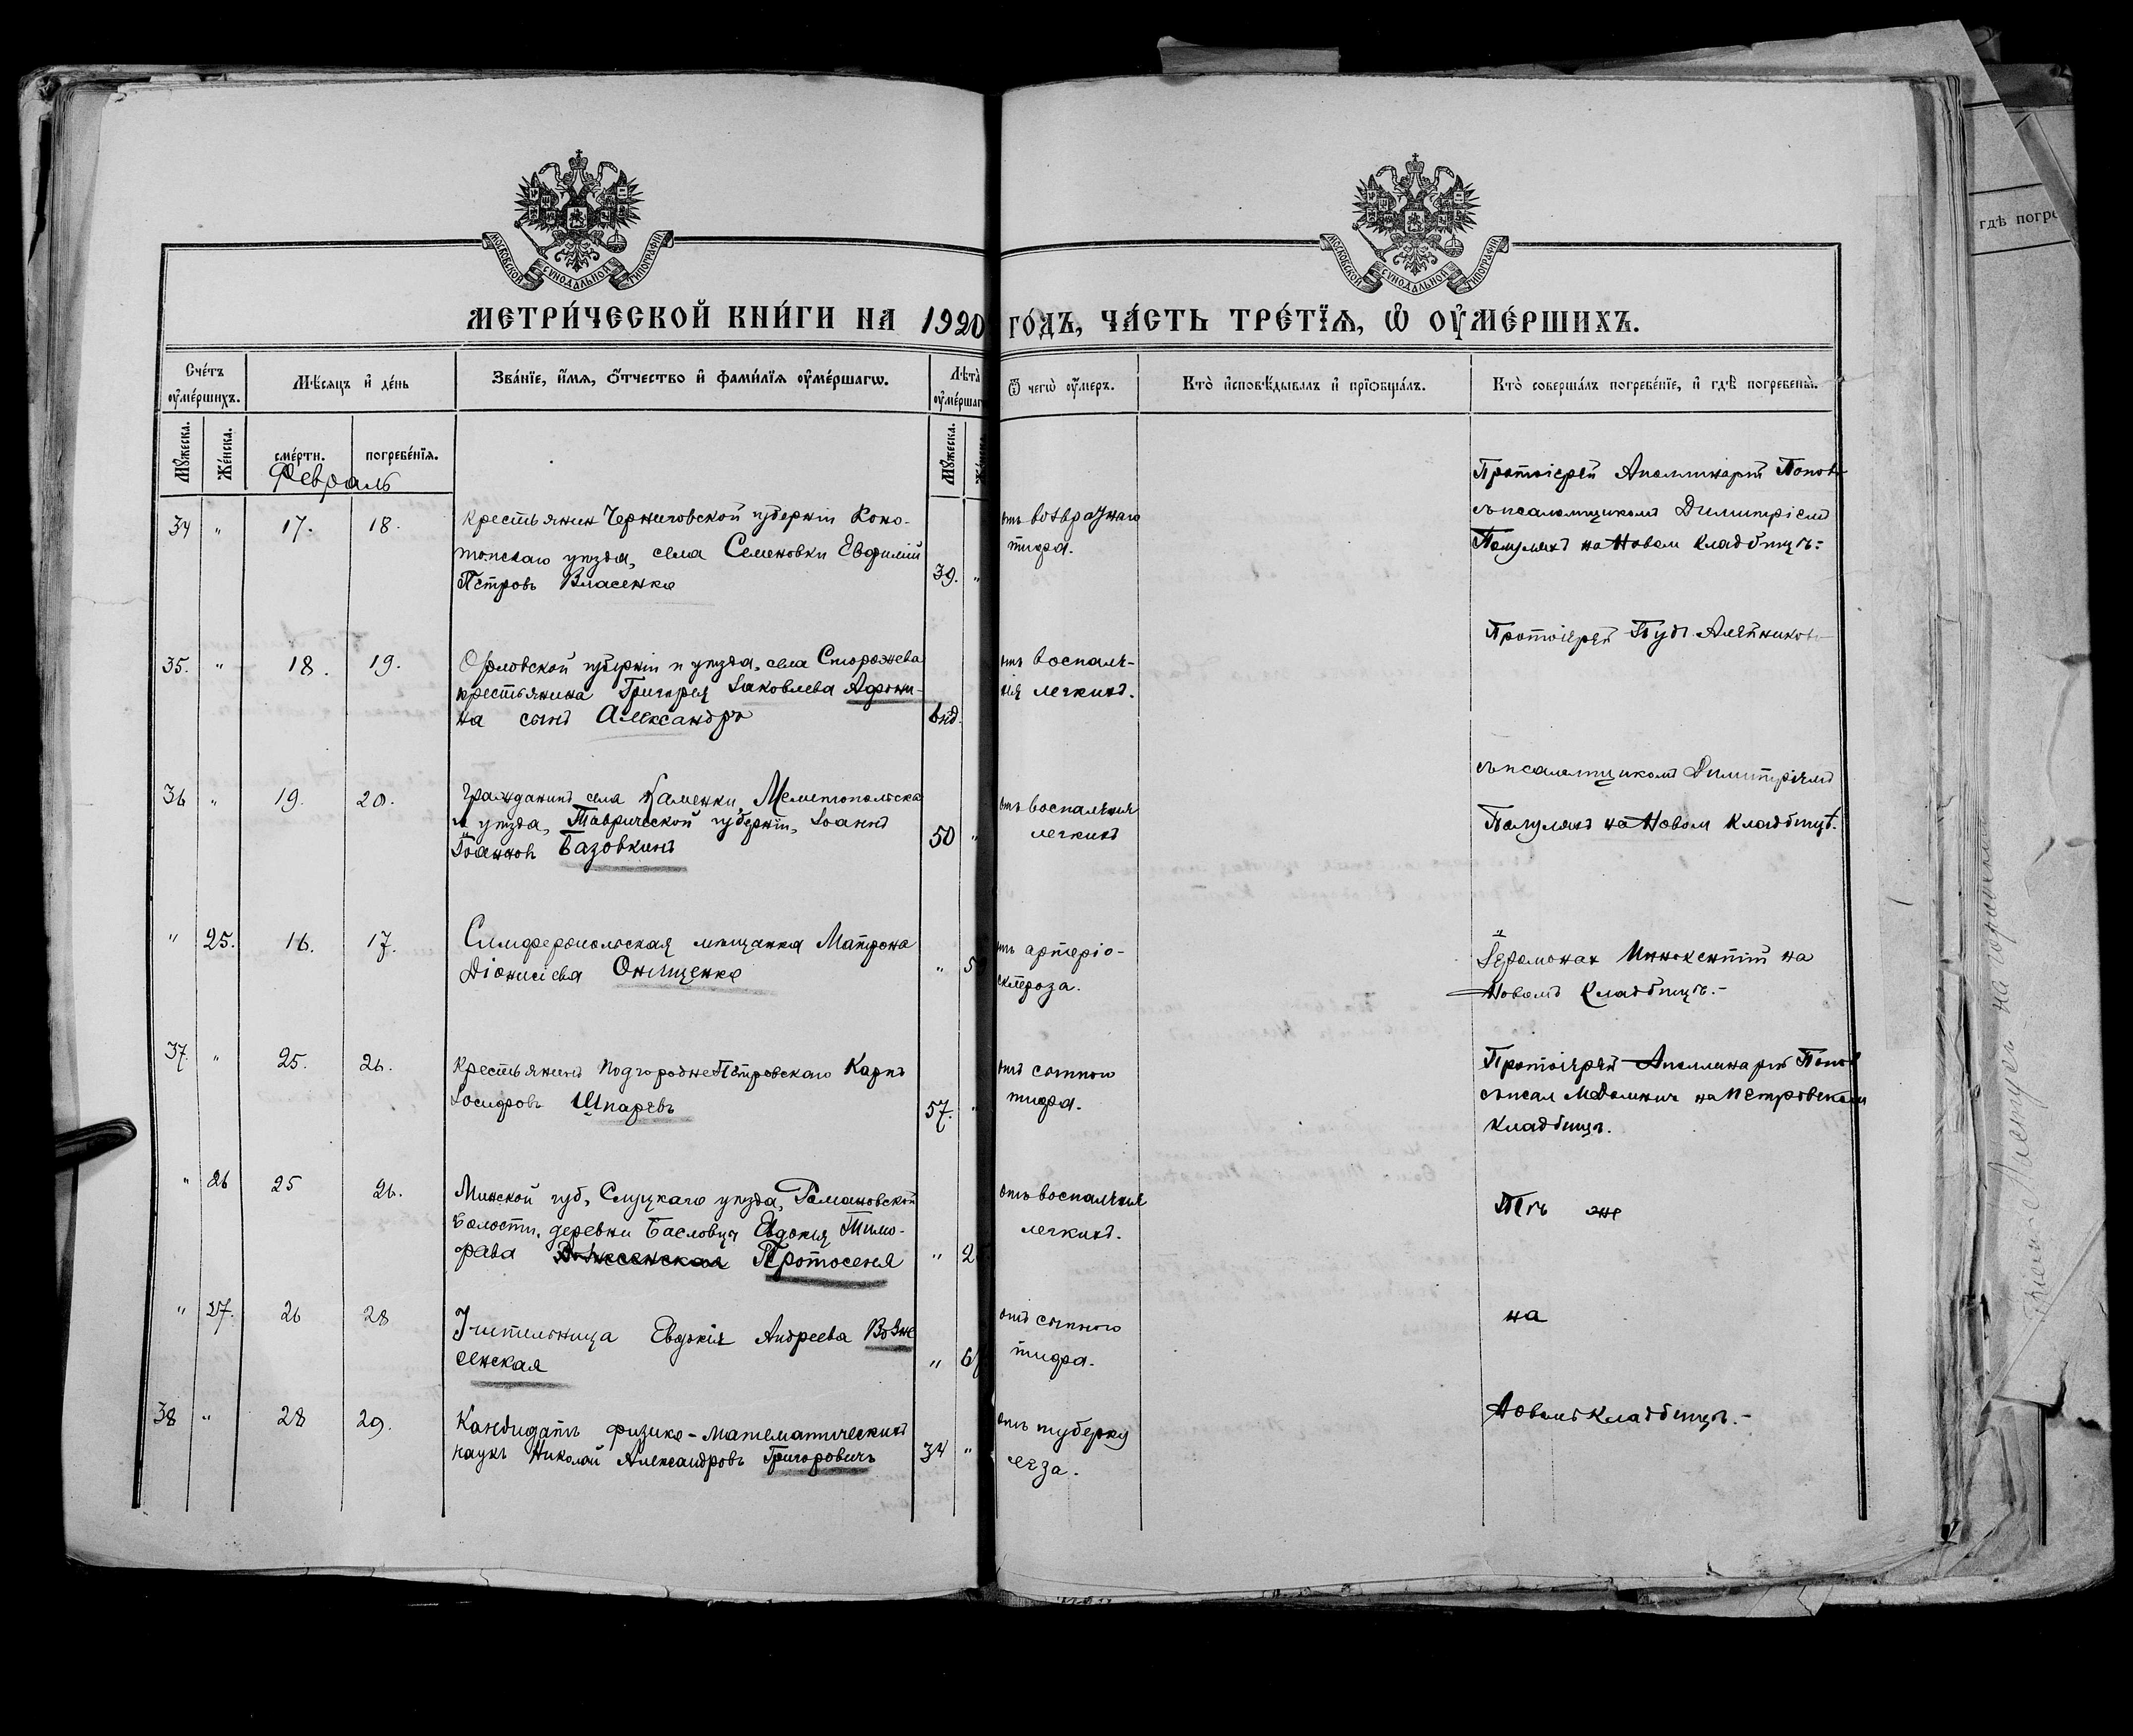 МОСКОВСКОЙ СУНОДАЛЬНОЙ ТИПОГРАФИИ
МОСКОВСКОЙ СУНОДАЛЬНОЙ ТИПОГРАФИИ
МЕТРИ́ЧЕСКОЙ КНИ́ГИ НА 1920 ГО́ДЪ, ЧА́СТЬ ТРЕ́ТЇѦ, Ѡ ОУ҆МЕ́РШИХЪ.
Сче́тъ оу҆ме́ршихъ.
Мѣ́сяцъ и҆ де́нь
Зва́нїе, и҆́мя, ѻ҆́тчество и҆ фами́лїя оу҆ме́ршагѡ.
Лѣта̀ оу҆ме́ршаг
Ѿ чегѡ̀ оу҆́меръ.
Кто̀ и҆сповѣ́дывалъ и҆ прїѻбща́лъ.
Кто̀ соверша́лъ погребе́нїе, и҆ гдѣ̀ погребены̀.
Мꙋ́жеска.
Же́нска.
сме́рти.
погребе́нїя.
Мꙋ́жеска.
Февраль
34 " 17. 18.
Крестьянин Черниговской губерніи Коно-
топскаго уѣзда, села Семеновки Евфимій
Петровъ Власенко
39. "
отъ возвратнаго
тифа.
Протоіерей Аполлинарій Поповъ
съ псаломщикомъ Димитріемъ
на Новом кладбищѣ.
35. " 18. 19.
Орловской губерніи и уѣзда, села Сторожева
крестьянина Григорія Іаковлева Афони-
на сынъ Александръ
отъ воспале-
нія легкихъ.
Протоіерей
36 " 19. 20.
Гражданинъ села Каменки, Мелитопольска
го уѣзда, Таврической губерніи, Іоаннъ
Іоаннов Базовкинъ
50 "
отъ воспаленія
легкихъ
съ псаломщикомъ Димитріемъ
на Новом кладбищѣ.
" 25. 16. 17.
Симферопольская мѣщанка Матрона
Діонисіева Онищенко
" 5
отъ артеріо-
склероза.
Іеромонах Иннокентій на
Новомъ кладбищѣ.-
37. " 25. 26.
Крестьянинъ Подгородне Петровскаго Карпъ
Іосифовъ Шпаревъ
57. "
отъ сыпного
тифа.
Протоіерей Аполлинарій Попов
на Петровском
кладбищѣ.
" 26 25 26.
Минской губ, Слуцкаго уѣзда, Романовской
волости, деревни Басловцы Евдокія Тимо-
феева Протосеня
" 2
отъ воспаленія
легкихъ.
Тѣ же
" 27. 26 28
Учительница Евдокія Андреева Возне
сенская
" 6
отъ сыпного
тифа.
на
38 " 28 29.
Кандидатъ физико-математическихъ
наукъ Николай Александровъ Григоровичъ
34 "
отъ туберку
леза.
Новомъ кладбищѣ.-
гдѣ погре